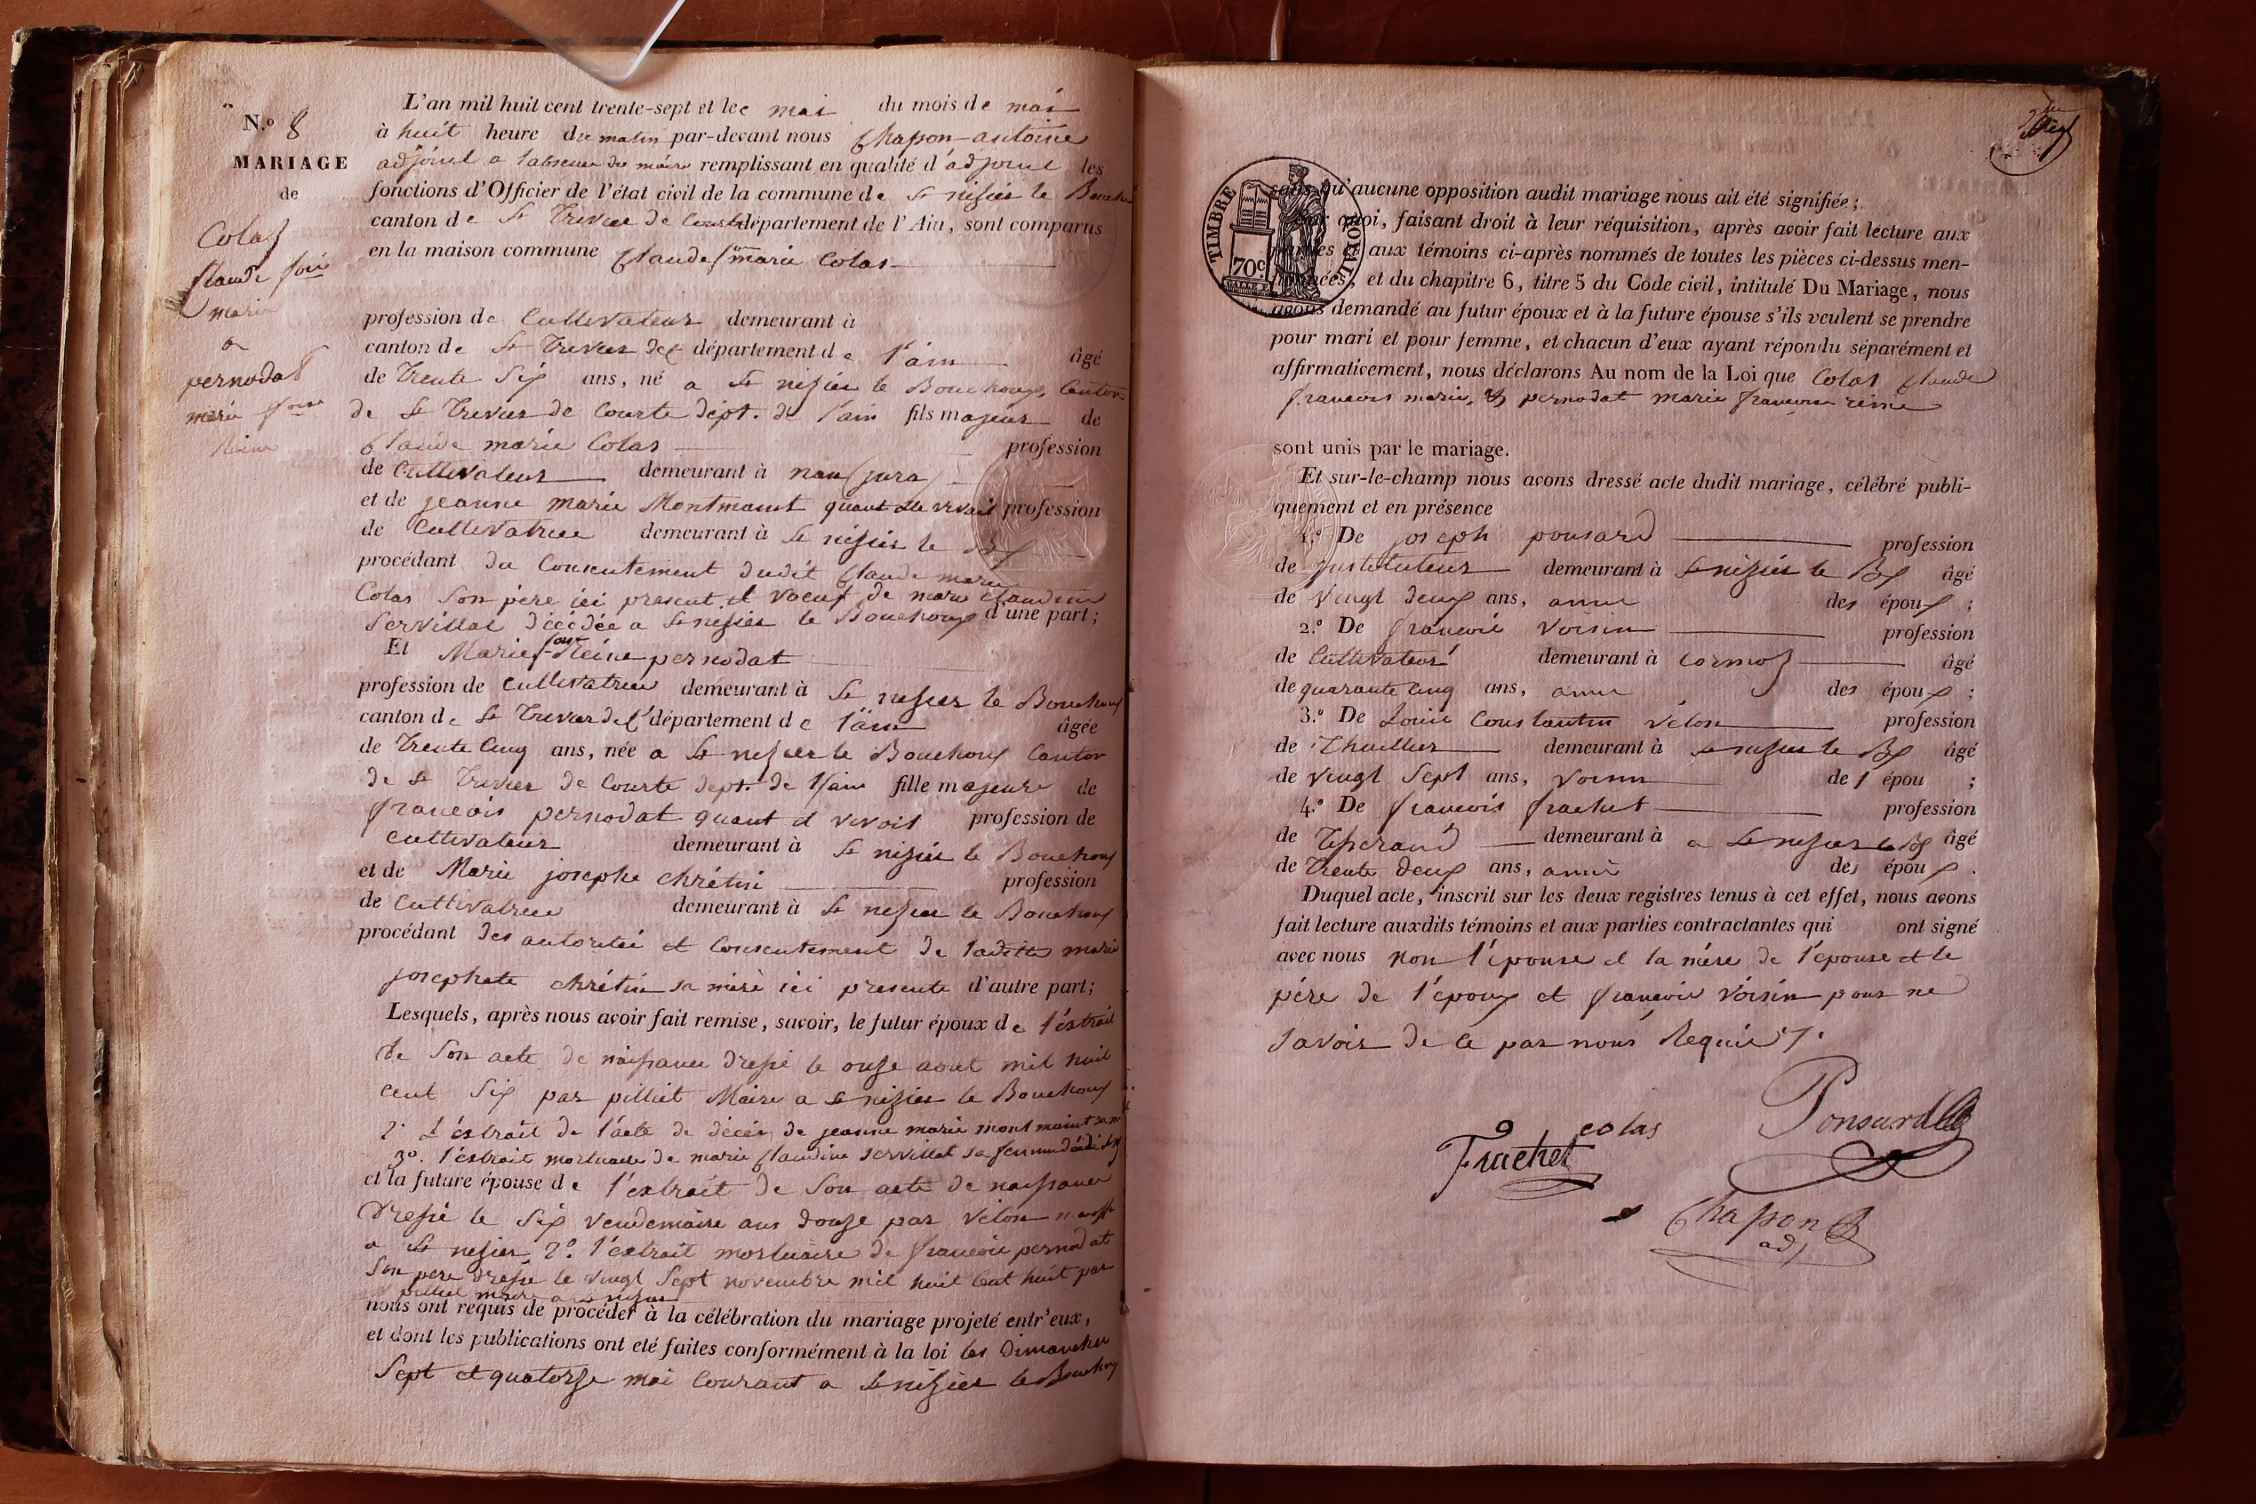 N.º 8
MARIAGE
de
Colas
Claude fois
marie
a
pernodat
marie foise
Reine
L'an mil huit cent trente-sept et le mai du mois de mai
à huit heure du matin par-devant nous Chapon antoine
adjoint a l'absence du maire remplissant en qualité d'adjoint les
fonctions d'Officier de l'état civil de la commune de St nisier le Bouchoux
canton de St Trivier de Courtes département de l'Ain, sont comparus
en la maison commune Claude fois marie Colas
profession de Cultivateur demeurant à
canton de St Trivier de C département de l'ain âgé
de Trente Six ans, né a St nizier le Bouchoux, Canton
de St Trivier de Courte dépt. de l'ain fils majeur de
Claude marie Colas profession
de Cultivateur demeurant à nan (jura)
et de jeanne marie Montmaint quant elle vivait profession
de Cultivatrice demeurant à St nisier le Bx
procédant du Consentement dudit Claude marie
Colas Son père ici present et voeuf de marie claudine
Servillat décédée a St nizier le Bouchoux d'une part;
Et Marie foise Reine pernodat
profession de cultivatrice demeurant à St nisier le Bouchoux
canton de St Trivier de C département de l'ain âgée
de Trente Cinq ans, née a St nizier le Bouchoux Canton
de St Trivier de Courte dept. de l'ain fille majeure de
francois pernodat quant il vivoit profession de
cultivateur demeurant à St nizier le Bouchoux
et de Marie josephe chrétin profession
de Cultivatrice demeurant à St nizier le Bouchoux
procédant des autoritéi et Consentement de laditte marie
josephete chrétin sa mère ici presente d'autre part;
Lesquels, après nous avoir fait remise, savoir, le futur époux de l'éxtrait
de Son acte de naissance dressé le onze aout mil huit
cent Six par pilliet Maire a St nizier le Bouchoux
2° L'éxtrait de l'acte de décès de jeanne marie montmaint
3°. l'éxtrait mortuaire de marie Claudine Servillat sa femme
et la future épouse de l'extrait de Son acte de naissance
Dressé le Six Vendemaire ans douze par Velon
a St nizier, 2°. l'extrait mortuaire de francois pernodat
Son pere dressé le vingt Sept novembre mil huit Cent huit par
pilliet maire a St nizier
nous ont requis de procéder à la célébration du mariage projeté entr'eux,
et dont les publications ont été faites conformément à la loi les Dimanches
Sept et quatorze mai Courant a St nizier le Bouchoux
TIMBRE ROYAL
70c
sans qu'aucune opposition audit mariage nous ait été signifiée;
Sur quoi, faisant droit à leur réquisition, après avoir fait lecture aux
parties et aux témoins ci-après nommés de toutes les pièces ci-dessus men-
tionnées, et du chapitre 6, titre 5 du Code civil, intitulé Du Mariage, nous
avons demandé au futur époux et à la future épouse s'ils veulent se prendre
pour mari et pour femme, et chacun d'eux ayant répondu séparément et
affirmativement, nous déclarons Au nom de la Loi que Colas Claude
francois marie, & pernodat marie francoise reine
sont unis par le mariage.
Et sur-le-champ nous avons dressé acte dudit mariage, célébré publi-
quement et en présence
1.º De joseph ponsard profession
de Instituteur demeurant à St nizier le Bx âgé
de Vingt deux ans, amie des époux ;
2.º De francois Voisin profession
de Cultivateur demeurant à cormoz âgé
de quarante Cinq ans, amie des époux ;
3.º De Louis Constantin Velon profession
de Thuillier demeurant à St nizier le Bx âgé
de vingt Sept ans, Voisin de l épou ;
4.º De francois frachet profession
de Tisserand demeurant à a St nizier le Bx âgé
de Trente deux ans, amie des époux.
Duquel acte, inscrit sur les deux registres tenus à cet effet, nous avons
fait lecture auxdits témoins et aux parties contractantes qui ont signé
avec nous non l'épouse et la mére de l'épouse et le
pére de l'époux et francois Voisin pour ne
Savoir de ce par nous Requis.
colas Ponsard
Frachet
Chapon
adj